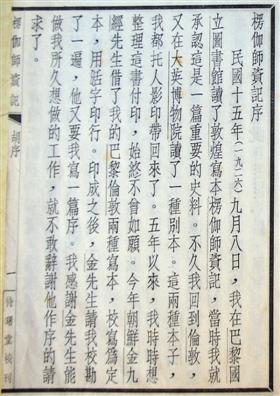 楞伽師資記序
民國十五年(一九二六)九月八日，我在巴黎國
立圖書館讀了敦煌寫本楞伽師資記，當時我就
承認這是一篇重要的史料。不久我回到倫敦，
又在大英博物院讀了一種別本。這兩種本子，
我都托人影印帶回來了。五年以來，我時時想
整理這書付印，始終不曾如願。今年朝鮮金九
經先生借了我的巴黎倫敦兩種寫本，校寫爲定
本，用活字印行。印成之後，金先生請我校勘
了一遍，他又要我寫一篇序。我感謝金先生能
做我所久想做的工作，就不敢辭謝他作序的請
求了。
楞伽師資記
胡序
一
待曙堂校刊